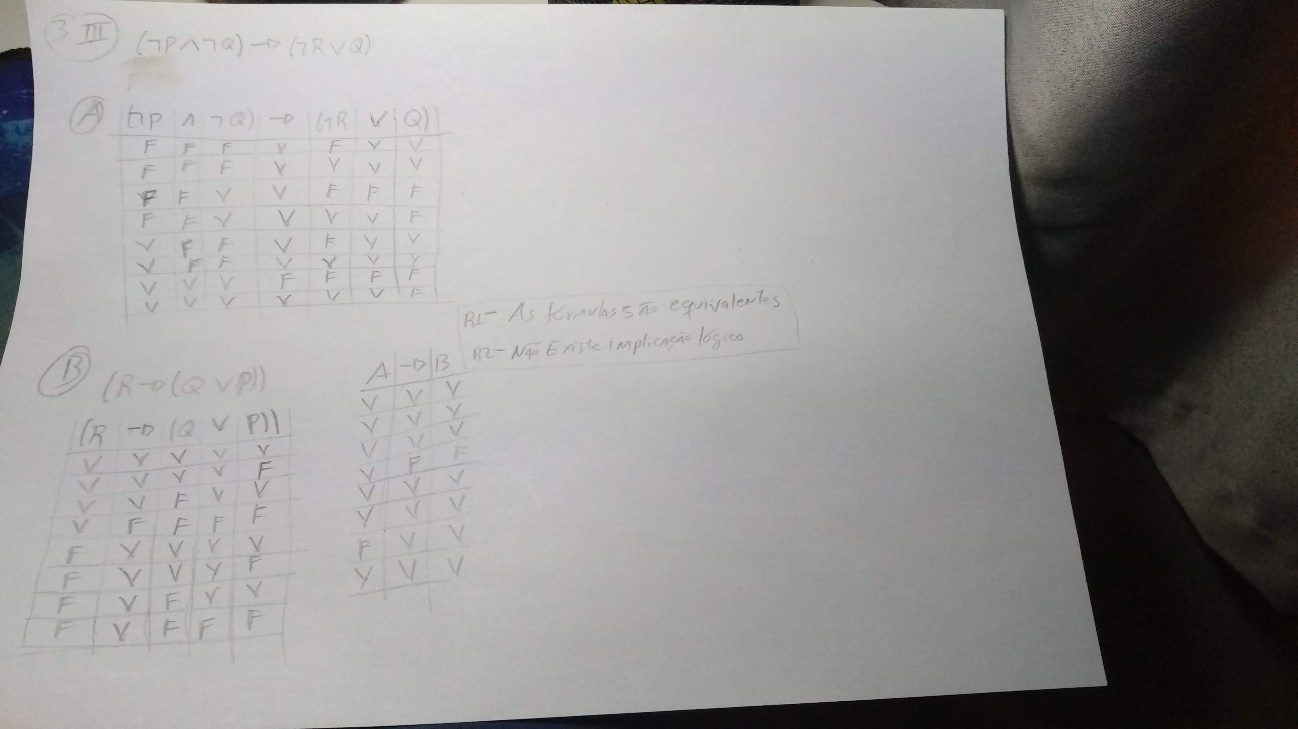 3 III (¬P∧¬Q)→(¬R∨Q)
A (¬P ∧ ¬Q) → (¬R ∨ Q)
F F F V F V V
F F F V V V V
F F V V F F F
F F V V V V F
V F F V F V V
V F F V V V V
V V V F F F F
V V V V V V F
R1- As fórmulas são equivalentes
R2- Não Existe implicação lógica
B (R→(Q∨P))
(R → (Q ∨ P))
V V V V V
V V V V F
V V F V V
V F F F F
F V V V V
F V V V F
F V F V V
F V F F F
A → B
V V V
V V V
V V V
V F F
V V V
V V V
F V V
V V V